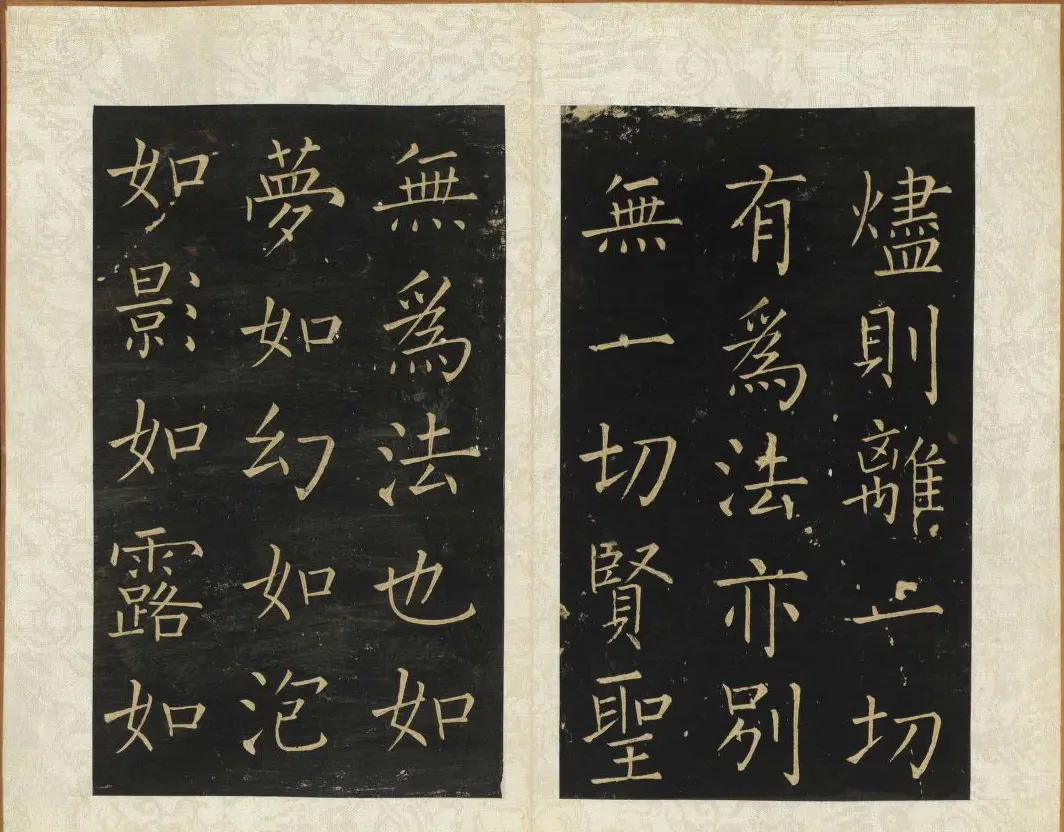 燼則離一切
有爲法亦別
無一切賢聖
無爲法也如
夢如幻如泡
如影如露如